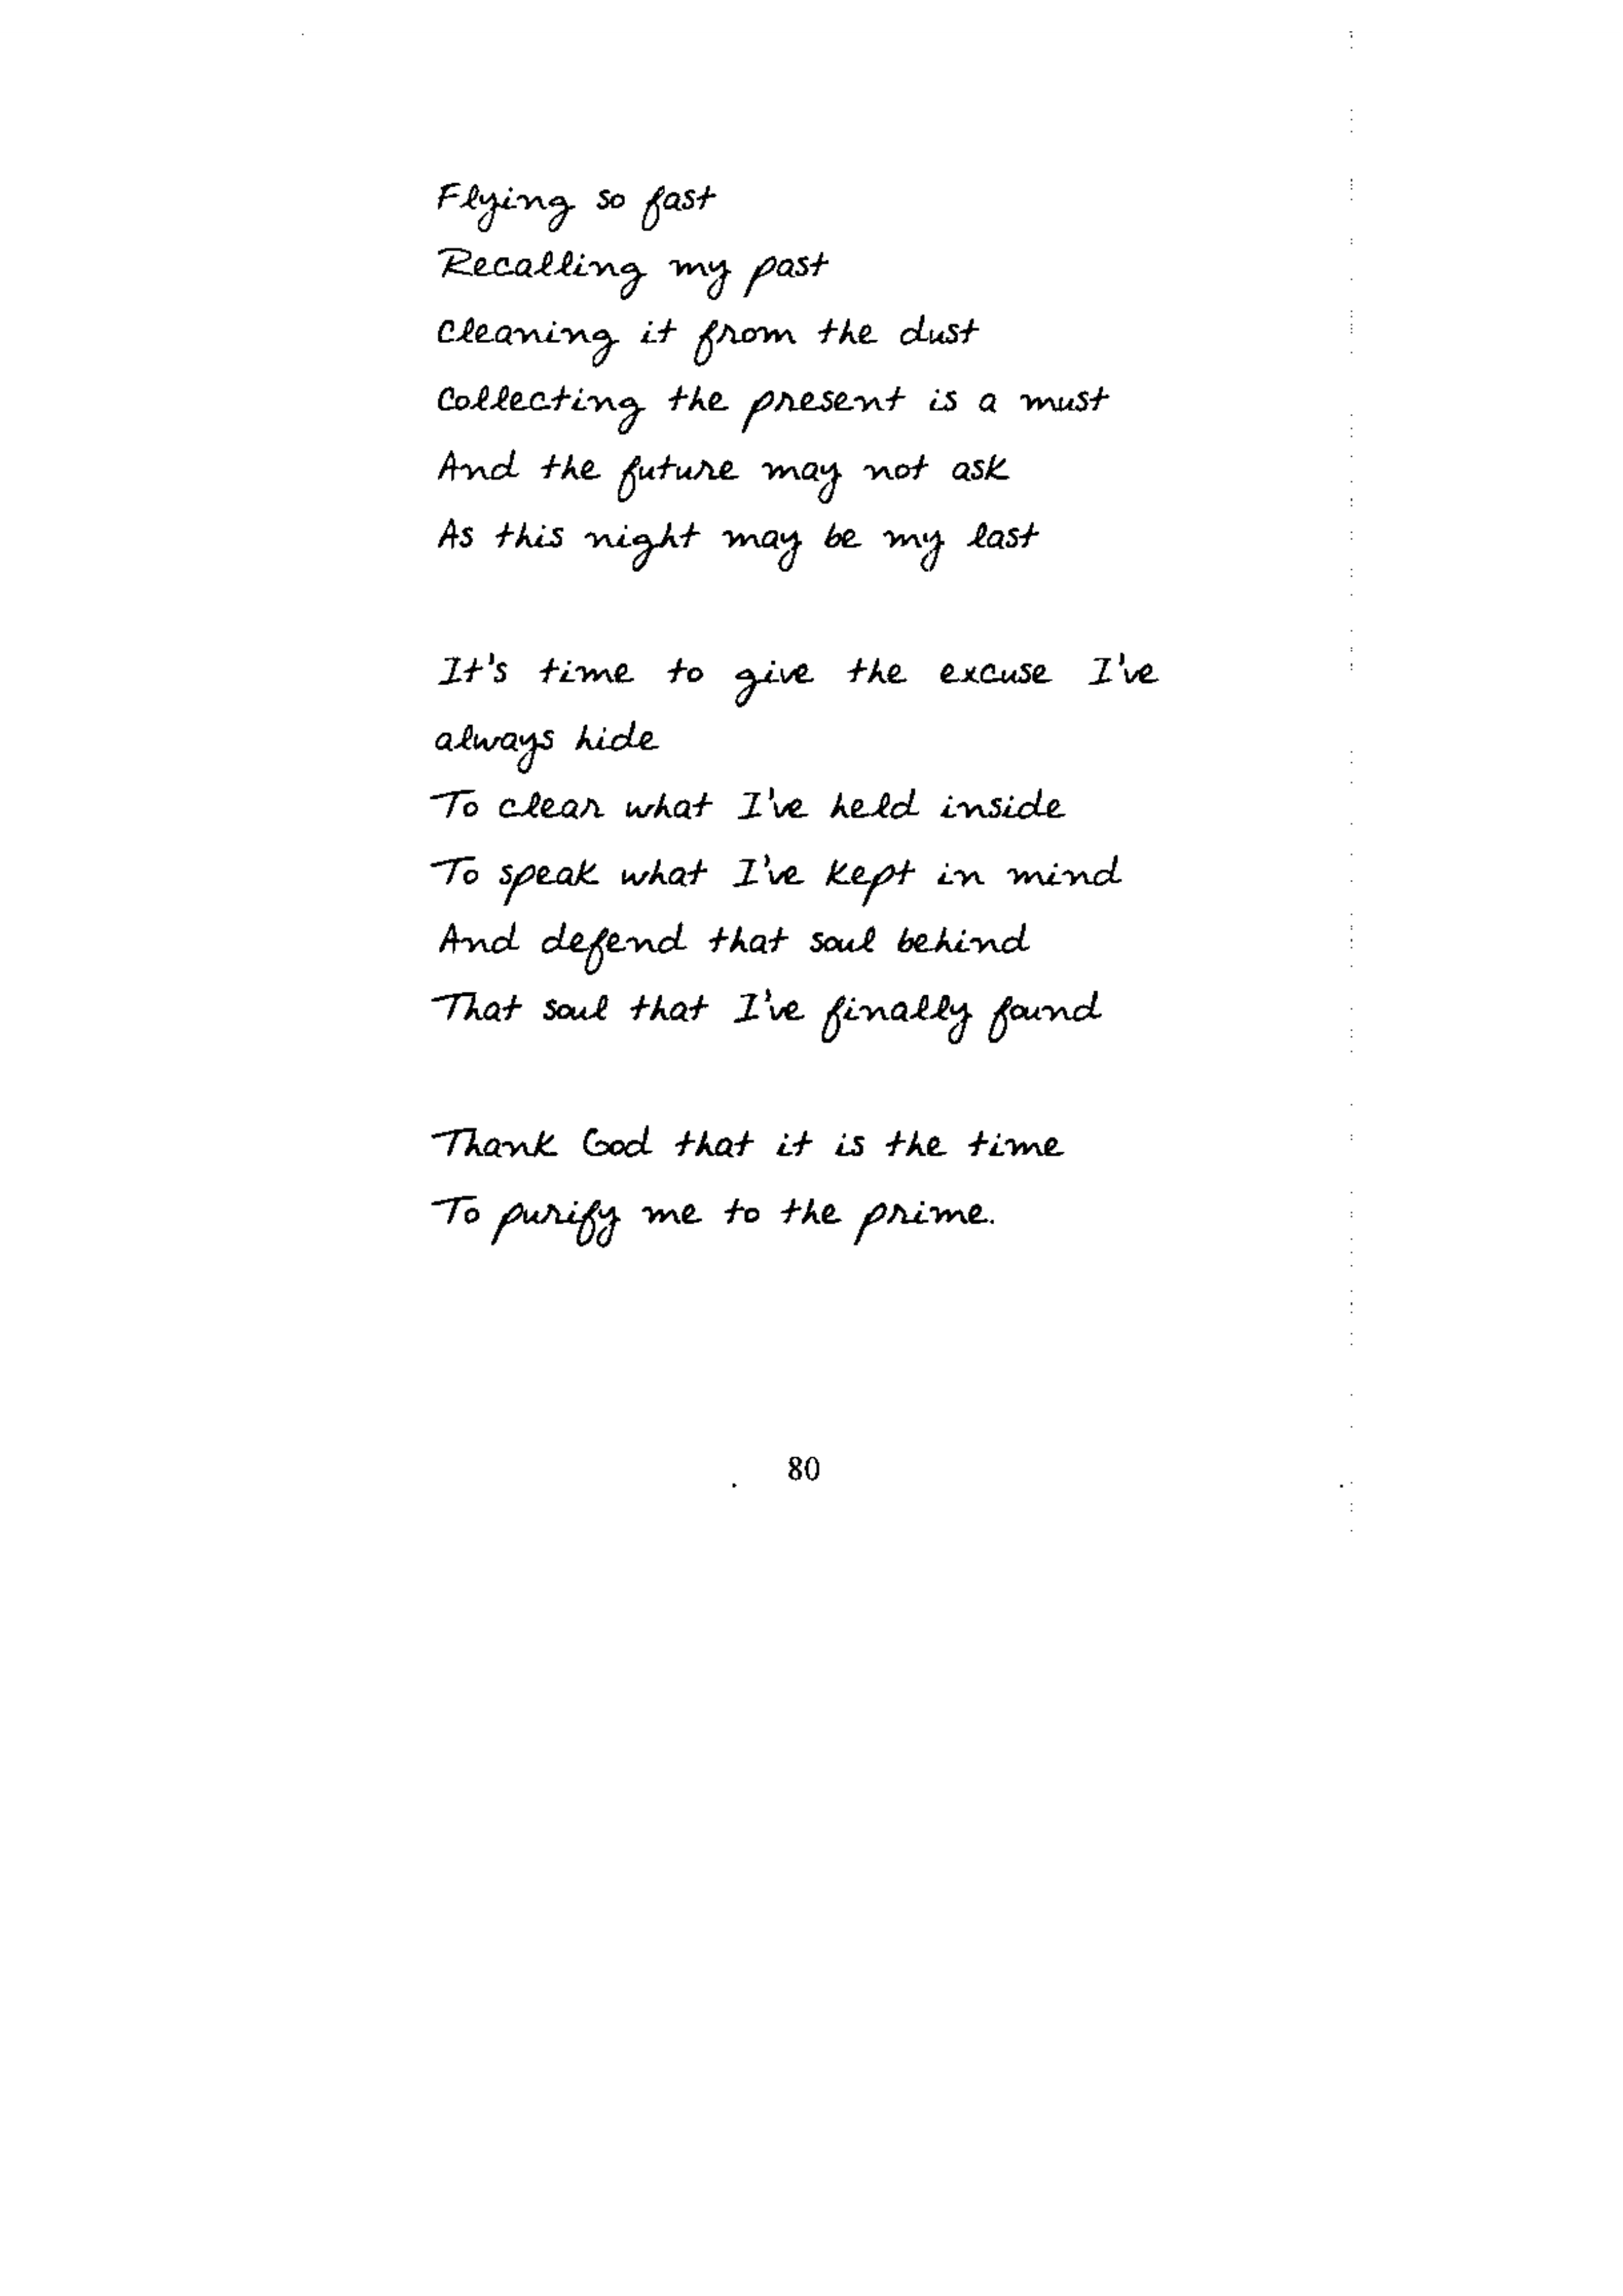 Flying so fast
Recalling my past
Cleaning it from the dust
Collecting the present is a must
And the future may not ask
As this night may be my last
It's time to give the excuse I've
always hide
To clear what I've held inside
To speak what I've kept in mind
And defend that soul behind
That soul that I've finally found
Thank God that it is the time
To purify me to the prime.
80